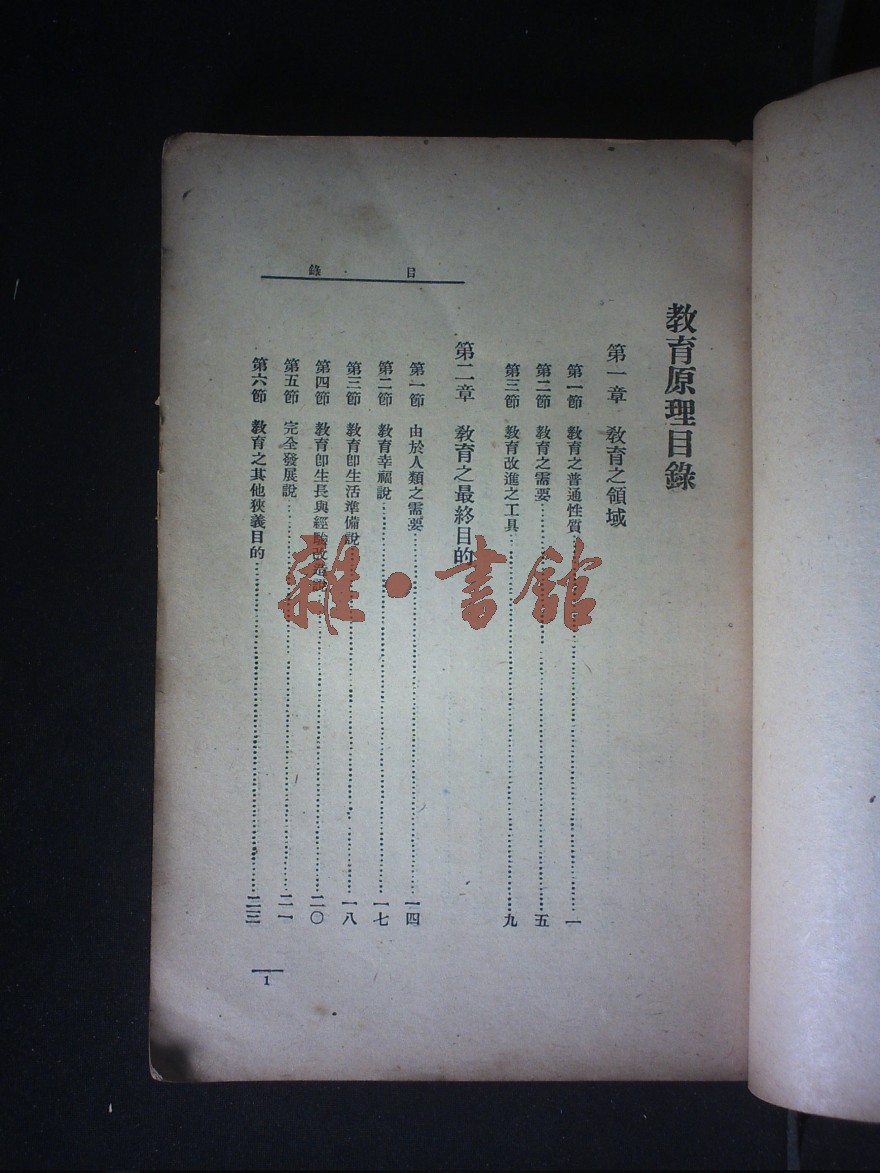 教育原理目錄
第一章　教育之領域
第一節　教育之普通性質…………一
第二節　教育之需要…………五
第三節　教育改進之工具…………九
第二章　教育之最終目的
第一節　由於人類之需要…………一四
第二節　教育幸福說…………一七
第三節　教育卽生活準備說…………一八
第四節　教育卽生長與經驗改造說…………二〇
第五節　完全發展說…………二一
第六節　教育之其他狹義目的…………二三
目錄
1
雜·書館